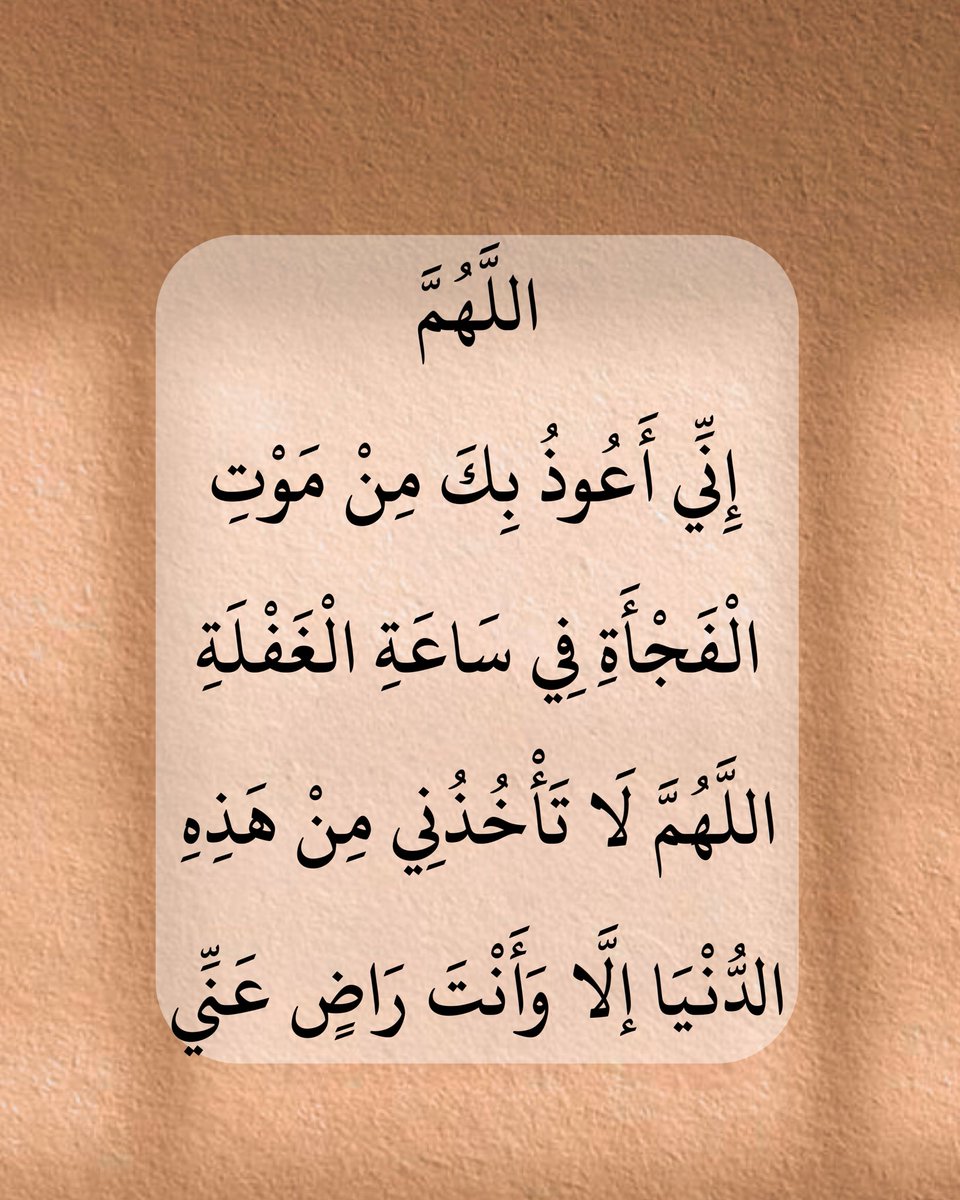 اللَّهُمَّ
إِنِّي أَعُوذُ بِكَ مِنْ مَوْتِ
الْفَجْأَةِ فِي سَاعَةِ الْغَفْلَةِ
اللَّهُمَّ لَا تَأْخُذُنِي مِنْ هَذِهِ
الدُّنْيَا إلَّا وَأَنْتَ رَاضٍ عَنِّي